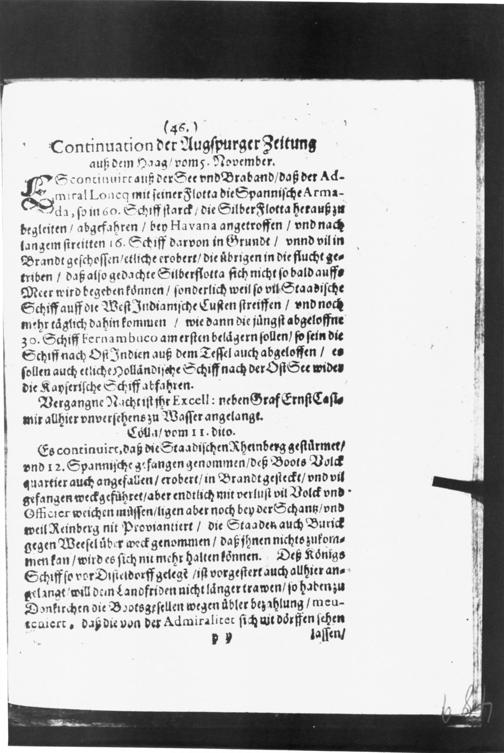 (46.)
Continuation der Augspurger Zeitung
auß dem Haag / vom 5. November.
ES continuirt auß der See vnd Braband / daß der Ad-
miral Loncq mit seiner Flotta die Spannische Arma-
da, so in 60. Schiff starck / die Silber Flotta herauß zu
begleiten / abgefahren / bey Havana angetroffen / vnd nach
langem streitten 16. Schiff darvon in Grundt / vnnd vil in
Brandt geschossen / etliche erobert / die übrigen in die flucht ge-
triben / daß also gedachte Silberflotta sich nicht so bald auffs
Meer wird begeben können / sonderlich weil so vil Staadische
Schiff auff die West Indianische Custen streiffen / vnd noch
mehr täglich dahin kommen / wie dann die jüngst abgeloffne
30. Schiff Fernambuco am ersten belägern sollen / so sein die
Schiff nach Ost Indien auß dem Tessel auch abgeloffen / es
sollen auch etliche Holländische Schiff nach der Ost See wider
die Kayserische Schiff abfahren.
Vergangne Nacht ist ihr Excell: neben Graf Ernst Casi-
mir allhier vnversehens zu Wasser angelangt.
Cölln / vom 11. dito.
Es continuirt, daß die Staadischen Rheinberg gestürmet /
vnd 12. Spannische gefangen genommen / deß Boots Volck
quartier auch angefallen / erobert / in Brandt gesteckt / vnd vil
gefangen weck geführet / aber endtlich mit verlust vil Volck vnd
Officier weichen müssen / ligen aber noch bey der Schantz / vnd
weil Reinberg nit Proviantiert / die Staaden auch Burick
gegen Weesel über weck genommen / daß ihnen nichts zukom-
men kan / wird es sich nit mehr halten können. Deß Königs
Schiff so vor Disseldorff gelegt / ist vorgestert auch allhier an-
gelangt / will dem Landfriden nicht länger trawen / so haben zu
Donkirchen die Bootsgesellen wegen übler bezahlung / meu-
teniert, daß die von der Admiralitet sich nit dörffen sehen
p y lassen /